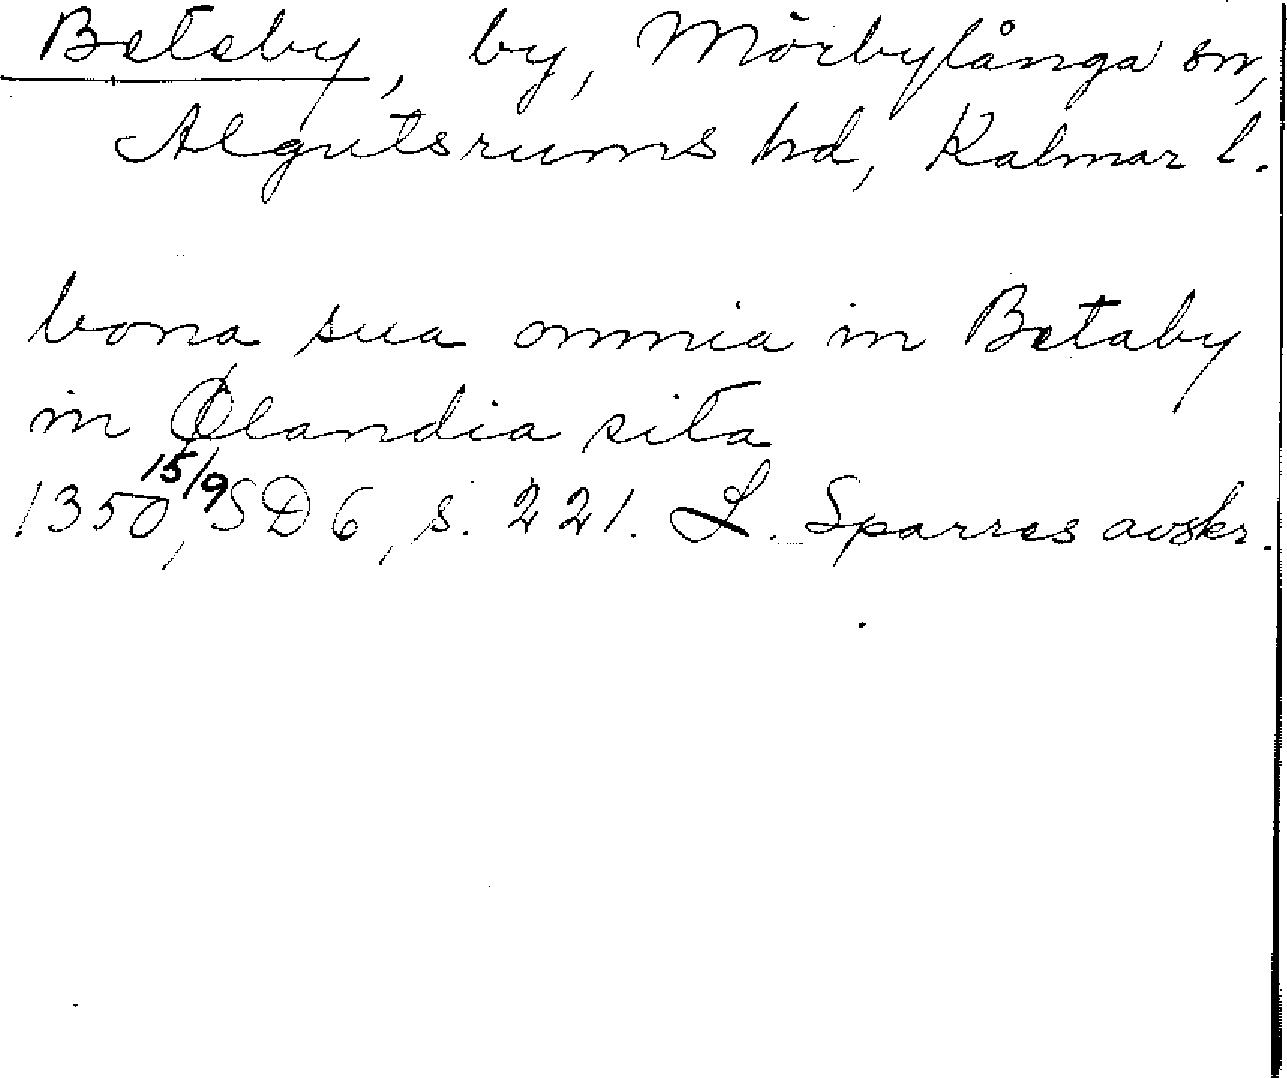 Beteby, by, Mörbylånga sn,
Algutsrums hd, Kalmar l.
bona sua omnia in Betaby
in Ølandia sita
1350 15/9, SD 6, s. 221. L. Sparres avskr.